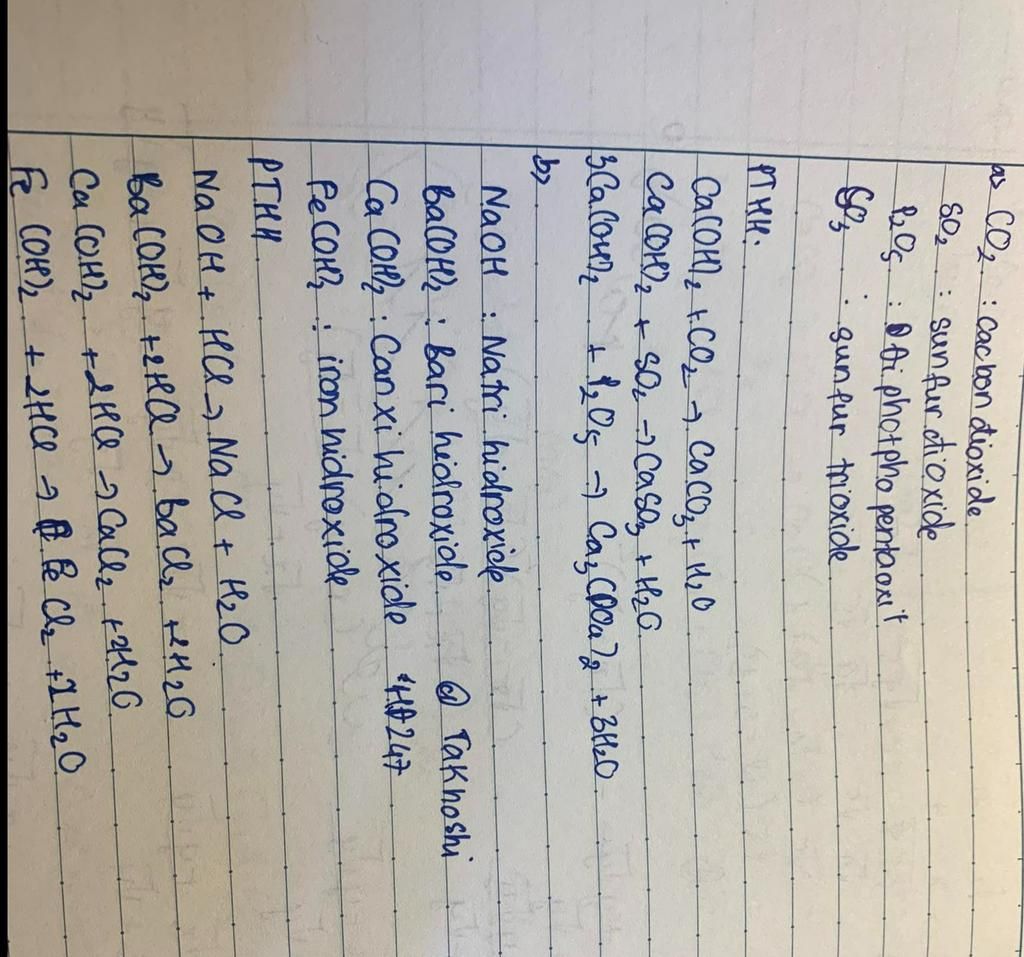 a) CO2 : Cacbon dioxide
SO2 : sunfur dioxide
P2O5 : Điphotpho pentoxit
SO3 : sunfur trioxide
PTHH.
Ca(OH)2 + CO2 → CaCO3 + H2O
Ca(OH)2 + SO2 → CaSO3 + H2O
3Ca(OH)2 + P2O5 → Ca3(PO4)2 + 3H2O
b)
NaOH : Natri hidroxide
Ba(OH)2 : Bari hidroxide
@ Taknoshi
Ca(OH)2 : Canxi hidroxide
247
Fe(OH)2 : iron hidroxide
PTHH
NaOH + HCl → NaCl + H2O
Ba(OH)2 + 2HCl → BaCl2 + 2H2O
Ca(OH)2 + 2HCl → CaCl2 + 2H2O
Fe(OH)2 + 2HCl → FeCl2 + 2H2O